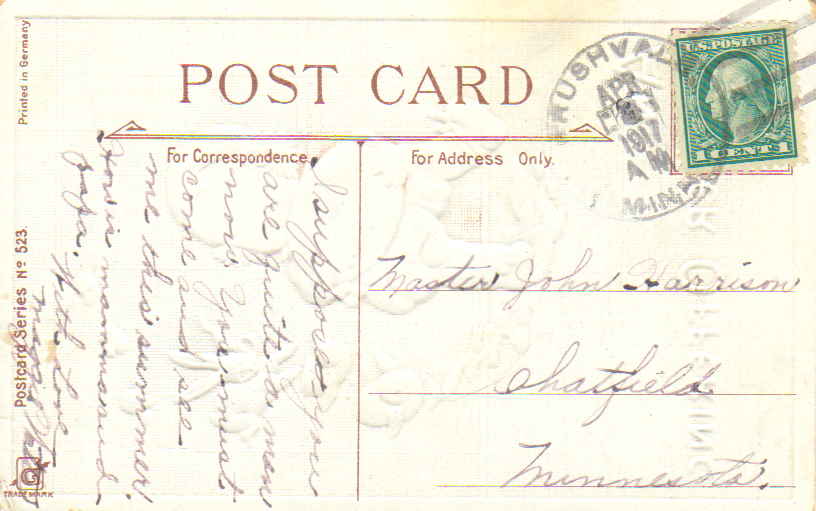 Printed in Germany
POST CARD
For Correspondence.
For Address Only.
Postcard Series Nº 523.
TRADE MARK
RUSHVAL
APR
1917
A M
MINN
U.S. POSTAGE
1 CENT 1
I suppose you
are quite a man
now. You must
come and see
me this summer.
How is mamma and
papa.
With Love
Master John Harrison
Chatfield
Minnesota.